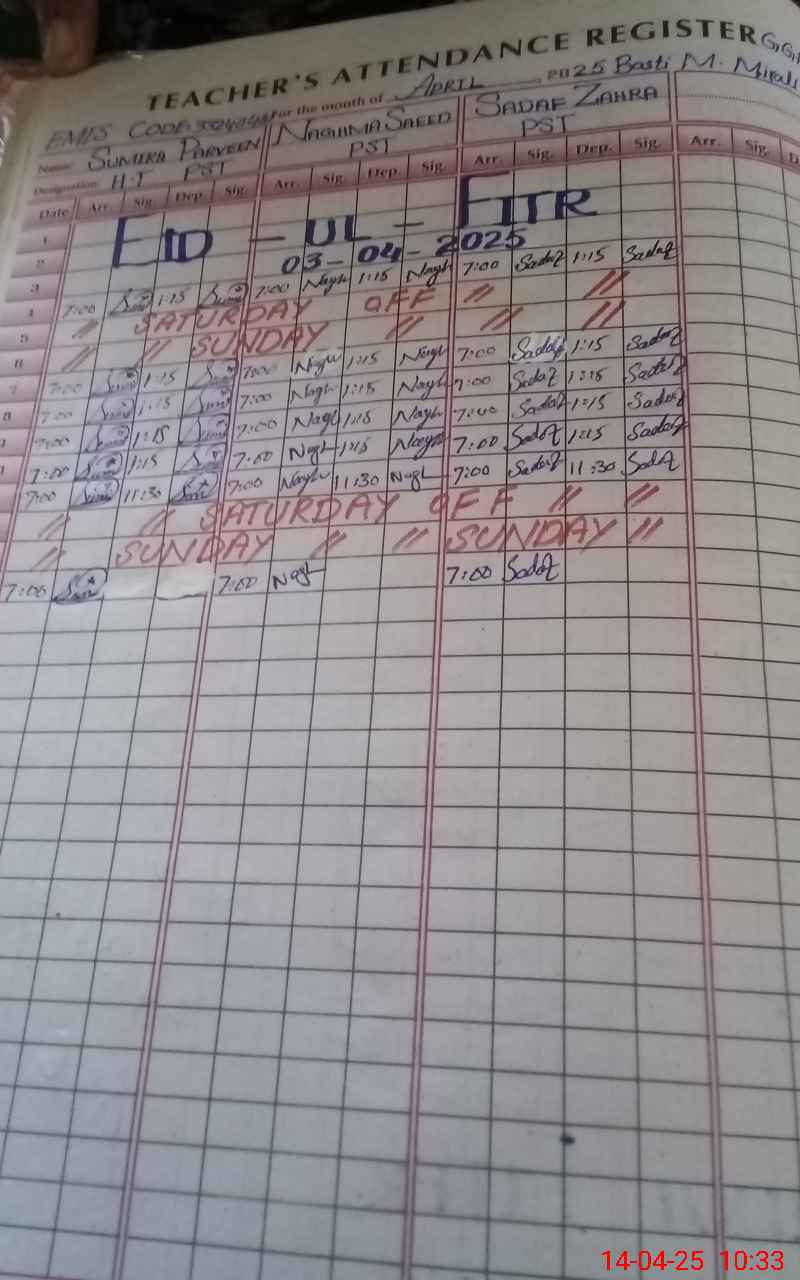 TEACHER'S ATTENDANCE REGISTER
for the month of APRIL 2025 Basti M. Mirali
EMIS CODE
Name: SUMIRA PARVEEN NAGHMA SAEED SADAF ZAHRA
Designation H.T PST PST PST
Date Arr. Sig. Dep. Sig. Arr. Sig. Dep. Sig. Arr. Sig. Dep. Sig. Arr. Sig.
1 EID - UL - FITR
2 03-04-2025
3 7:00 1:15 7:00 Nagh 1:15 Nagh 7:00 Sadaf 1:15 Sadaf
4 〃 SATURDAY OFF 〃 〃
5 〃 〃 SUNDAY 〃 〃 〃
6 7:00 1:15 7:00 Nagh 1:15 Nagh 7:00 Sadaf 1:15 Sadaf
7 7:00 1:15 7:00 Nagh 1:15 Nagh 7:00 Sadaf 1:15 Sadaf
8 7:00 1:15 7:00 Nagh 1:15 Nagh 7:00 Sadaf 1:15 Sadaf
7:00 1:15 7:00 Nagh 1:15 Nagh 7:00 Sadaf 1:15 Sadaf
7:00 11:30 7:00 Nagh 11:30 Nagh 7:00 Sadaf 11:30 Sadaf
〃 〃 SATURDAY OFF 〃 〃
〃 SUNDAY 〃 〃 SUNDAY 〃
7:00 7:00 Nagh 7:00 Sadaf
14-04-25 10:33